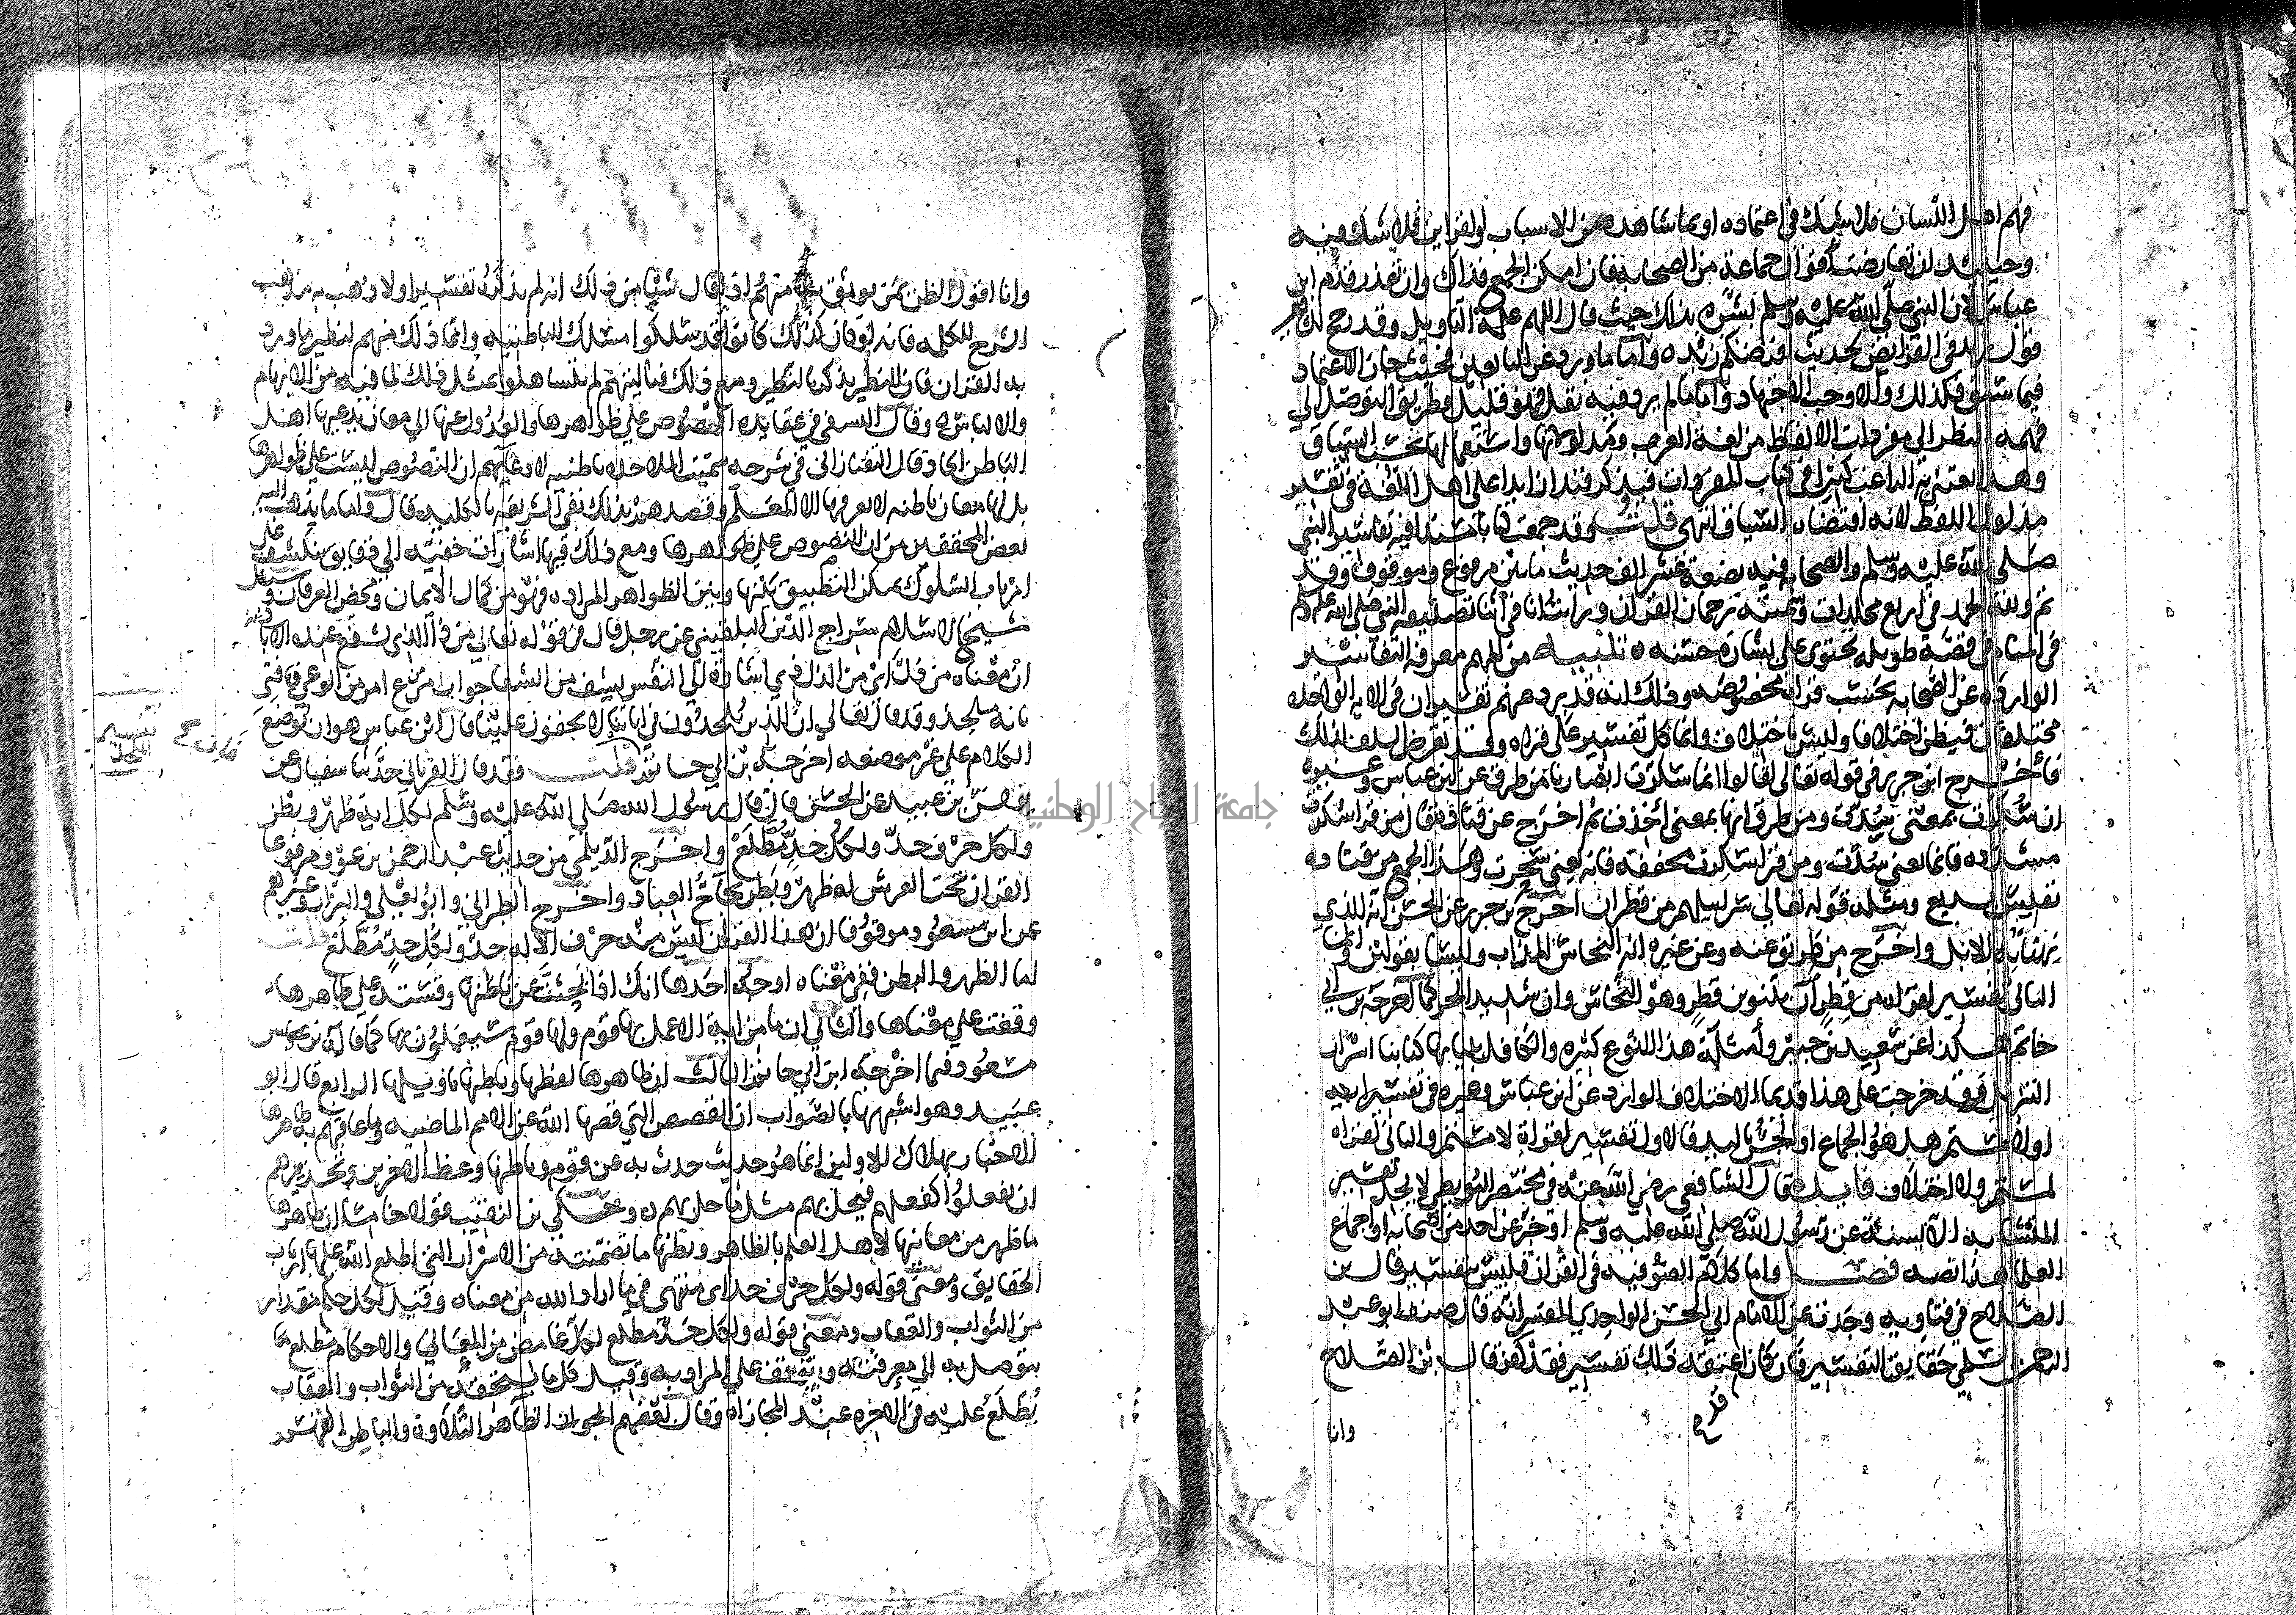 فهم اهل اللسان فلا شك في اعتماده او بما شاهده من الاسباب والقراين فلا شك فيه
وحينئذ ان تعارضت اقوال جماعة من الصحابة فان امكن الجمع فذاك وان تعذر قدم ابن
عباس لان النبي صلى الله عليه وسلم بشره بذلك حيث قال اللهم علمه التاويل وقد رجح
قول زيد في الفرايض لحديث افرضكم زيد واما ما ورد عن التابعين فحيث جاز الاعتماد
فيما سبق فكذلك والا وجب الاجتهاد واما ما لم يرد فيه نقل فهو قليل وطريق التوصل الى
فهمه النظر الى مفردات الالفاظ من لغة العرب ومدلولاتها واستعمالها بحسب السياق
وهذا يعتني به الراغب كثيرا في كتاب المفردات فيذكر قيدا زايدا على اهل اللغة في تفسير
مدلول اللفظ لانه اقتضاه السياق انتهى قلت وقد جمعت كتابا مسندا فيه تفاسير النبي
صلى الله عليه وسلم والصحابة فيه بضعة عشر الف حديث ما بين مرفوع وموقوف وقد
تم ولله الحمد في اربع مجلدات وسميته ترجمان القران ورايت وانا في اثنا تصنيفه النبي صلى الله عليه وسلم
في المنام في قصة طويلة تحتوي على بشارة حسنة تنبيه من المهم معرفة التفاسير
الواردة عن الصحابة بحسب قراة مخصوصة وذلك انه قد يرد عنهم تفسيران في الاية الواحدة
مختلفان فيظن اختلافا وليس باختلاف وانما كل تفسير على قراة وقد تعرض السلف لذلك
فاخرج ابن جرير في قوله تعالى لقالوا انما سكرت ابصارنا من طرق عن ابن عباس وغيره
ان سكرت بمعنى سدت ومن طرق انها بمعنى اخذت ثم اخرج عن قتادة قال من قرا سكرت
مشددة فانما يعني سدت ومن قرا سكرت مخففة فانه يعني سحرت وهذا الجمع من قتادة
نفيس بديع ومثله قوله تعالى سرابيلهم من قطران اخرج بن جرير عن الحسن انه الذي
تهنا به الابل واخرج من طرق عنه وعن غيره انه النحاس المذاب وليسا بقولين وانما
الثاني تفسير لقراة من قطر آن بتنوين قطر وهو النحاس وان شديد الحر كما اخرجه بن ابي
حاتم هكذا عن سعيد بن جبير وامثلة هذا النوع كثيرة والكافل ببيانها كتابنا اسرار
التنزيل وقد خرجت على هذا قديما الاختلاف الوارد عن ابن عباس وغيره في تفسير اية
او لامستم هل هو الجماع او الجس باليد فالاول تفسير لقراة لامستم والثاني لقراة
لمستم ولا اختلاف فايدة قال الشافعي رضي الله عنه في مختصر البويطي لا يحل تفسير
المتشابه الا بسنة عن رسول الله صلى الله عليه وسلم او خبر عن احد من اصحابه او اجماع
العلما هذا نصه فصل واما كلام الصوفية في القران فليس بتفسير قال بن
الصلاح في فتاويه وجدت عن الامام ابي الحسن الواحدي المفسر انه قال صنف ابو عبد
الرحمن السلمي حقايق التفسير فان كان اعتقد ذلك تفسير فقد كفر قال بن الصلاح
وانا
وانا اقول الظن بمن يوثق به منهم اذا قال شيا من ذلك انه لم يذكره تفسيرا ولا ذهب به مذهب
الشرح للكلمة فانه لو كان كذلك كانوا قد سلكوا مسلك الباطنية وانما ذلك منهم لنظير ما ورد
به القران فان النظير يذكر بالنظير ومع ذلك فيا ليتهم لم يتساهلوا بمثل ذلك لما فيه من الابهام
والالباس وقال النسفي في عقايده النصوص على ظواهرها والعدول عنها الى معان يدعيها اهل
الباطن الحاد قال التفتازاني في شرحه سميت الملاحدة باطنية لادعايهم ان النصوص ليست على ظواهرها
بل لها معان باطنة لا يعرفها الا المعلم وقصدهم بذلك نفي الشريعة بالكلية قال واما ما يذهب اليه
بعض المحققين من ان النصوص على ظواهرها ومع ذلك فيها اشارات خفية الى دقايق تنكشف على
ارباب السلوك يمكن التطبيق بينها وبين الظواهر المرادة فهو من كمال الايمان ومحض العرفان وسيل
شيخ الاسلام سراج الدين البلقيني عن رجل قال في قوله تعالى من ذا الذي يشفع عنده الا باذنه
ان معناه من ذل اي من الذل ذي اشارة الى النفس يشف من الشفا جواب من ع امر من الوعي فافتى
بانه ملحد وقد قال تعالى ان الذين يلحدون في اياتنا لا يخفون علينا قال ابن عباس هو ان يوضع
الكلام على غير موضعه اخرجه بن ابي حاتم فان قلت فقد قال الفريابي حدثنا سفيان عن
يونس بن عبيد عن الحسن قال قال رسول الله صلى الله عليه وسلم لكل اية ظهر وبطن
ولكل حرف حد ولكل حد مطلع واخرج الديلمي من حديث عبد الرحمن بن عوف مرفوعا
القران تحت العرش له ظهر وبطن يحاج العباد واخرج الطبراني وابو يعلى والبزار وغيرهم
عن ابن مسعود موقوفا ان هذا القران ليس منه حرف الا له حد ولكل حد مطلع قلت
اما الظهر والبطن ففي معناه اوجه احدها انك اذا بحثت عن باطنها وقسته على ظاهرها
وقفت على معناها والثاني ان ما من اية الا عمل بها قوم ولها قوم سيعملون بها كما قاله بن
مسعود فيما اخرجه ابن ابي حاتم الثالث ان ظاهرها لفظها وباطنها تاويلها الرابع قال ابو
عبيد وهو اشبهها بالصواب ان القصص التي قصها الله عن الامم الماضية وما عاقبهم به ظاهرها
الاخبار بهلاك الاولين انما هو حديث حدث به عن قوم وباطنها وعظ الاخرين وتحذيرهم
ان يفعلوا كفعلهم فيحل بهم مثل ما حل بهم وحكى بن النقيب قولا خامسا ان ظاهرها
ما ظهر من معانيها لاهل العلم بالظاهر وبطنها ما تضمنته من الاسرار التي اطلع الله عليها ارباب
الحقايق ومعنى قوله ولكل حرف حد اي منتهى فيما اراد الله من معناه وقيل لكل حكم مقدار
من الثواب والعقاب ومعنى قوله ولكل حد مطلع لكل غامض من المعاني والاحكام مطلع
يتوصل به الى معرفته ويتوقف على المراد به وقيل كل ما يستحقه من الثواب والعقاب
يطلع عليه في الاخرة عند المجازاة وقال بعضهم الظاهر التلاوة والباطن الفهم
تفسير
جامعة النجاح الوطنية